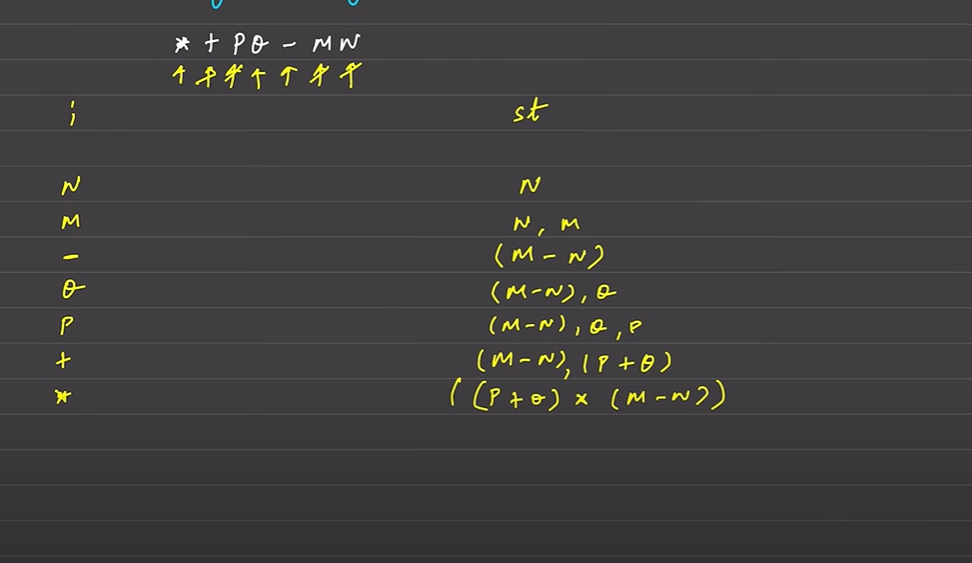 * + P Q - M N
i st
N N
M N, M
- (M - N)
Q (M-N), Q
P (M-N), Q, P
+ (M-N), (P+Q)
* ((P+Q) × (M-N))